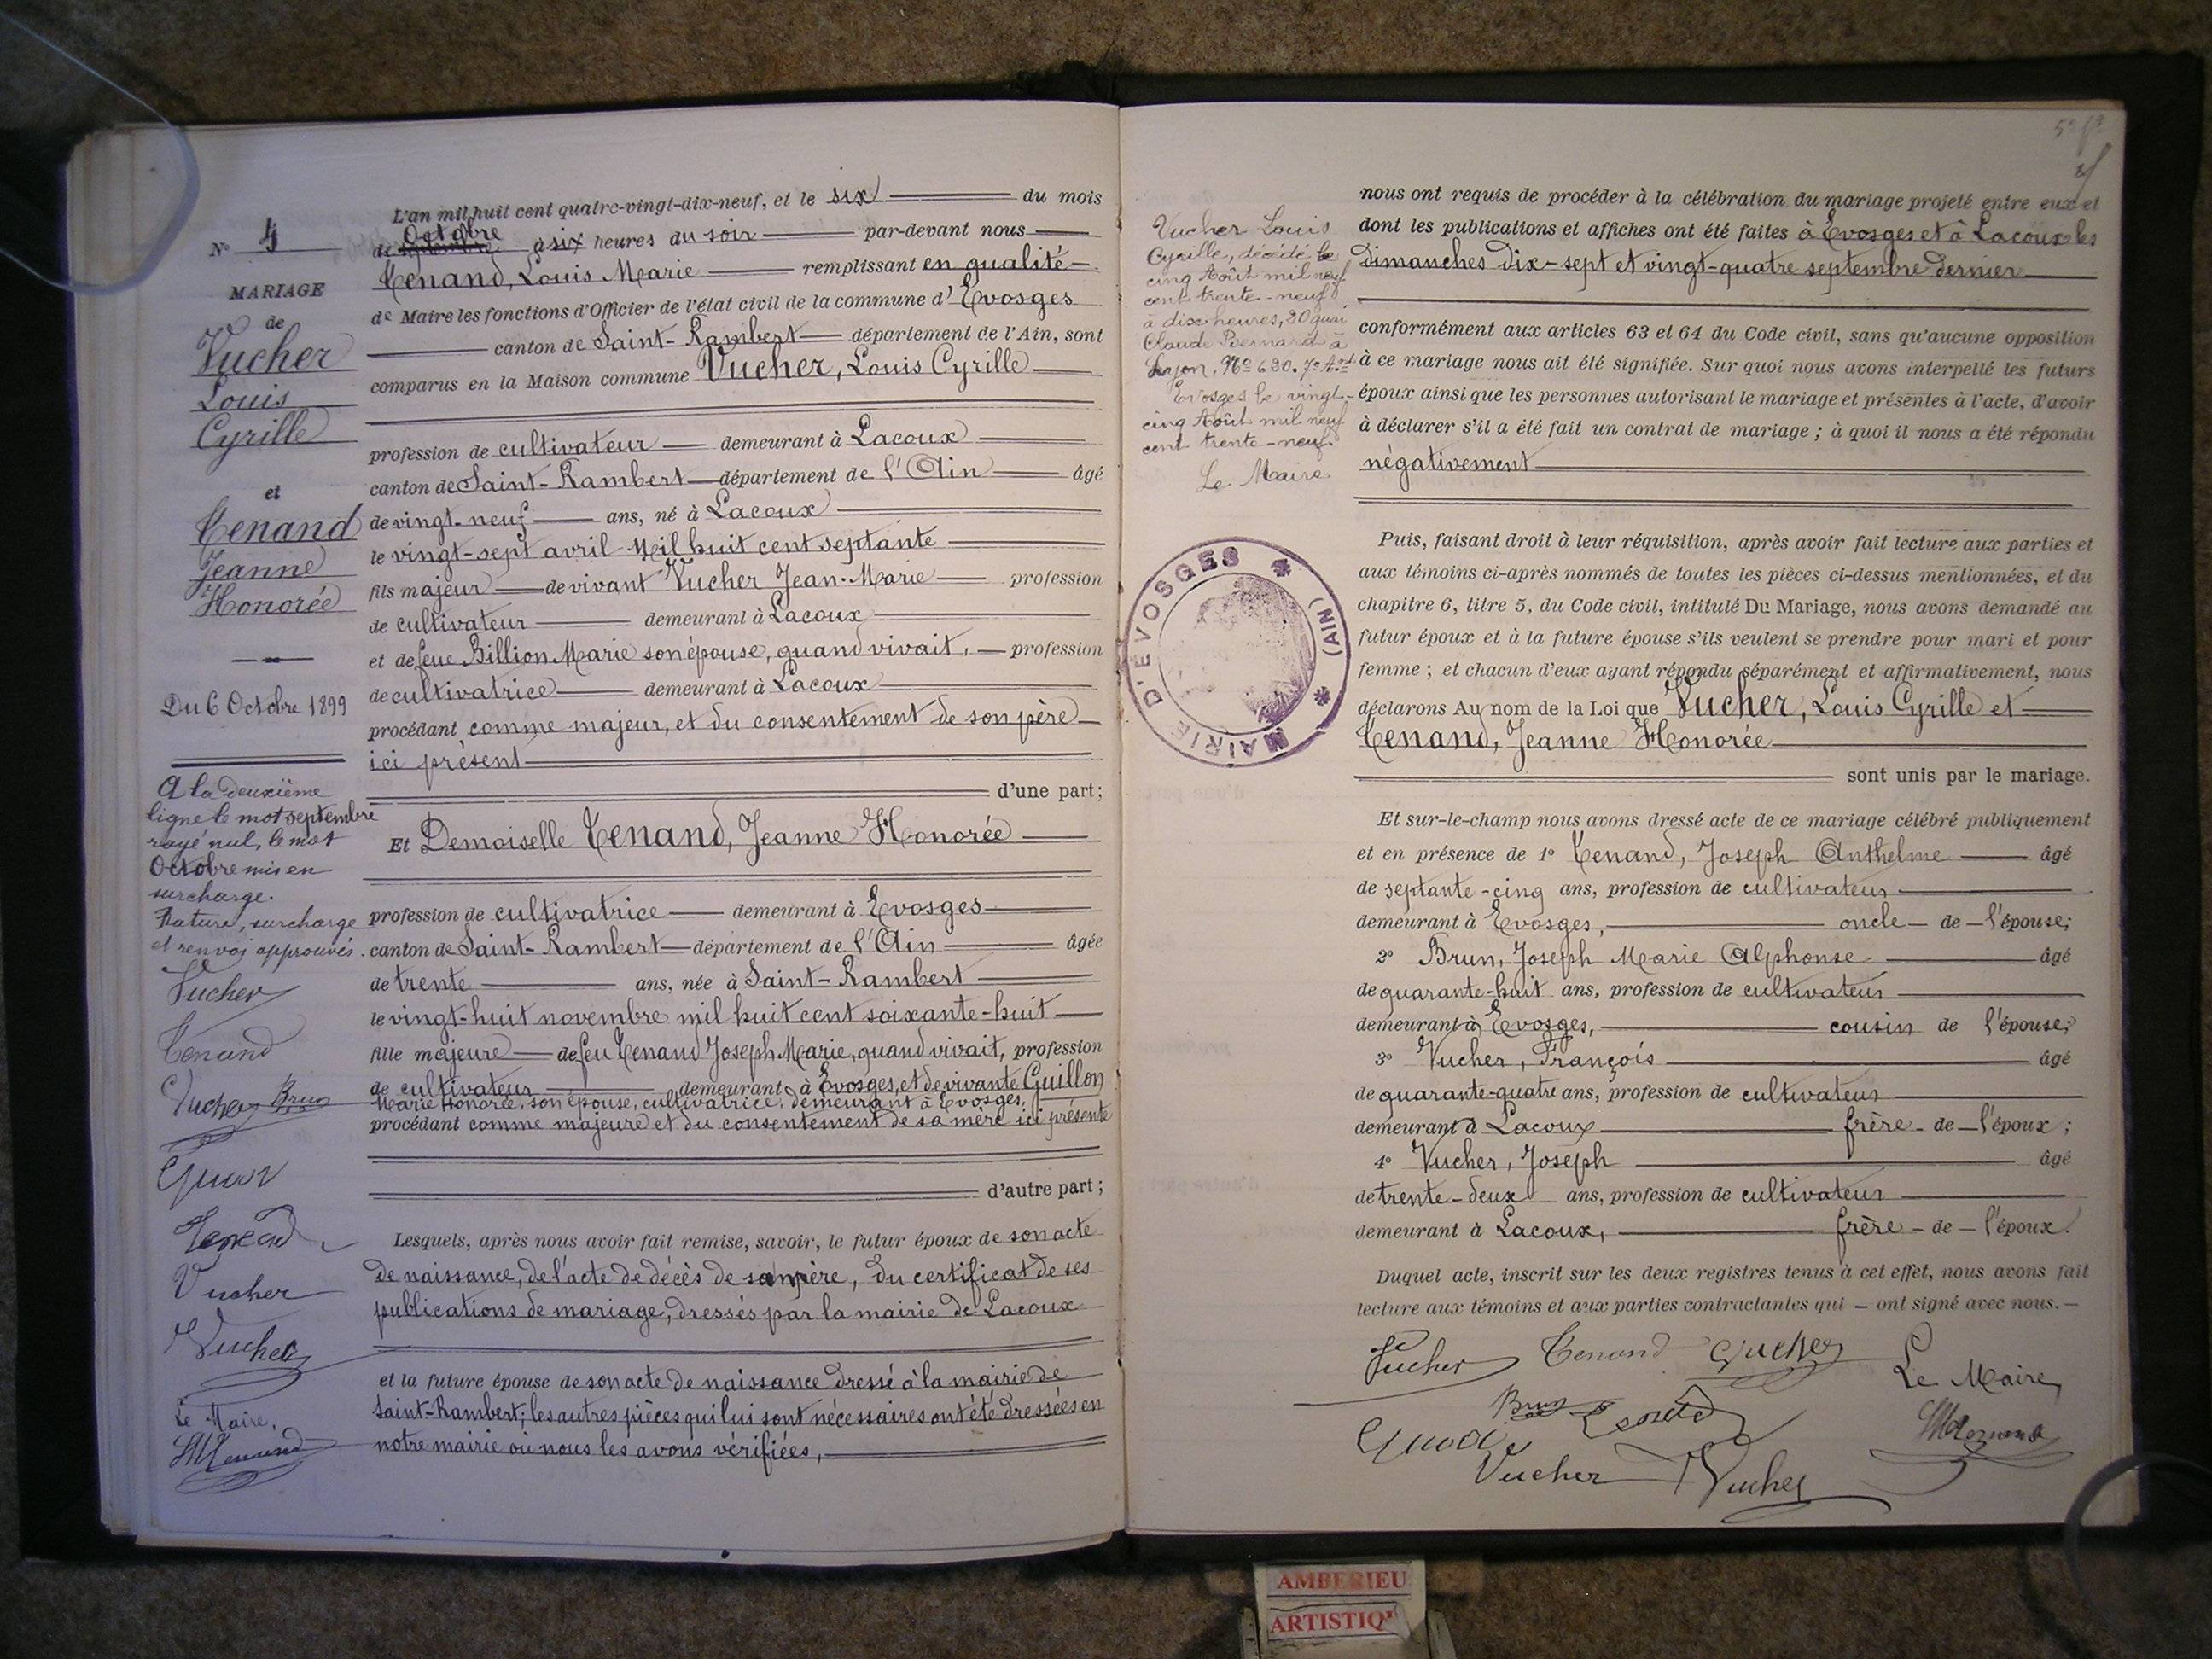 N° 4
MARIAGE
de
Vucher
Louis
Cyrille
et
Tenand
Jeanne
Honorée
Du 6 Octobre 1899
A la deuxième
ligne le mot septembre
rayé nul, le mot
Octobre mis en
surcharge.
Rature, surcharge
et renvoi approuvés.
Vucher
Tenand
Vucher Brun
Tenand
Vucher
Vucher
Le Maire,
L'an mil huit cent quatre-vingt-dix-neuf, et le six du mois
Octobre
de septembre à six heures du soir par-devant nous
Tenand, Louis Marie remplissant en qualité
de Maire les fonctions d'Officier de l'état civil de la commune d'Evosges
canton de Saint-Rambert département de l'Ain, sont
comparus en la Maison commune Vucher, Louis Cyrille
profession de cultivateur demeurant à Lacoux
canton de Saint-Rambert département de l'Ain âgé
de vingt-neuf ans, né à Lacoux
le vingt-sept avril Mil huit cent septante
fils majeur de vivant Vucher Jean-Marie profession
de cultivateur demeurant à Lacoux
et de feue Billion Marie son épouse, quand vivait, profession
de cultivatrice demeurant à Lacoux
procédant comme majeur, et du consentement de son père
ici présent
d'une part;
Et Demoiselle Tenand, Jeanne Honorée
profession de cultivatrice demeurant à Evosges
canton de Saint-Rambert département de l'Ain âgée
de trente ans, née à Saint-Rambert
le vingt-huit novembre mil huit cent soixante-huit
fille majeure de feu Tenand Joseph Marie, quand vivait, profession
de cultivateur demeurant à Evosges, et de vivante Guillon
Marie Honorée, son épouse, cultivatrice, demeurant à Evosges,
procédant comme majeure et du consentement de sa mère ici présente
d'autre part;
Lesquels, après nous avoir fait remise, savoir, le futur époux de son acte
de naissance, de l'acte de décès de sa mère, du certificat de ses
publications de mariage, dressés par la mairie de Lacoux
et la future épouse de son acte de naissance dressé à la mairie de
Saint-Rambert; les autres pièces qui lui sont nécessaires ont été dressées en
notre mairie où nous les avons vérifiées,
Vucher Louis
Cyrille, décédé le
cinq Août mil neuf
cent trente-neuf
à dix heures, 20 quai
Claude Bernard à
Lyon, N° 630. 7e Art
Evosges le vingt-
cinq Août mil neuf
cent trente-neuf
Le Maire
MAIRIE D'EVOSGES * (AIN) *
nous ont requis de procéder à la célébration du mariage projeté entre eux et
dont les publications et affiches ont été faites à Evosges et à Lacoux les
dimanches dix-sept et vingt-quatre septembre dernier
conformément aux articles 63 et 64 du Code civil, sans qu'aucune opposition
à ce mariage nous ait été signifiée. Sur quoi nous avons interpellé les futurs
époux ainsi que les personnes autorisant le mariage et présentes à l'acte, d'avoir
à déclarer s'il a été fait un contrat de mariage; à quoi il nous a été répondu
négativement
Puis, faisant droit à leur réquisition, après avoir fait lecture aux parties et
aux témoins ci-après nommés de toutes les pièces ci-dessus mentionnées, et du
chapitre 6, titre 5, du Code civil, intitulé Du Mariage, nous avons demandé au
futur époux et à la future épouse s'ils veulent se prendre pour mari et pour
femme; et chacun d'eux ayant répondu séparément et affirmativement, nous
déclarons Au nom de la Loi que Vucher, Louis Cyrille et
Tenand, Jeanne Honorée
sont unis par le mariage.
Et sur-le-champ nous avons dressé acte de ce mariage célébré publiquement
et en présence de 1° Tenand, Joseph Anthelme âgé
de septante-cinq ans, profession de cultivateur
demeurant à Evosges, oncle de l'épouse;
2° Brun, Joseph Marie Alphonse âgé
de quarante-huit ans, profession de cultivateur
demeurant à Evosges, cousin de l'épouse;
3° Vucher, François âgé
de quarante-quatre ans, profession de cultivateur
demeurant à Lacoux frère de l'époux;
4° Vucher, Joseph âgé
de trente-deux ans, profession de cultivateur
demeurant à Lacoux, frère de l'époux.
Duquel acte, inscrit sur les deux registres tenus à cet effet, nous avons fait
lecture aux témoins et aux parties contractantes qui ont signé avec nous.
Vucher Tenand Vucher
Le Maire,
Brun
Vucher Vucher
AMBERIEU
ARTISTIQ